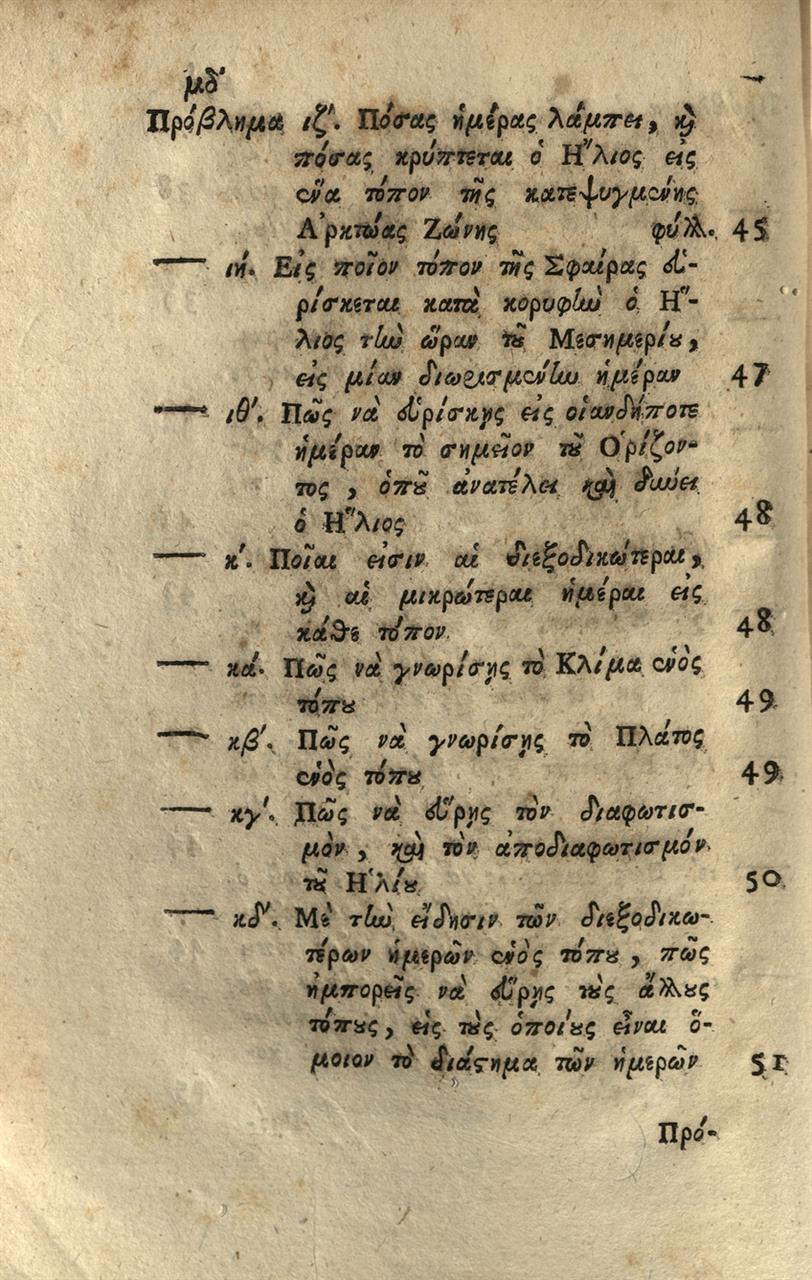 μδ′
Πρόβλημα ιζ′. Πόσας ἡμέρας λάμπει, ϗ̀
πόσας κρύπτεται ὁ Ἥλιος εἰς
ἕνα τόπον τῆς κατεψυγμένης
Ἀρκτώας Ζώνης φύλλ. 45
— ιή. Εἰς ποῖον τόπον τῆς Σφαίρας εὑ-
ρίσκεται κατὰ κορυφὴν ὁ Ἥ-
λιος τὴν ὥραν τȣ͂ Μεσημερίȣ,
εἰς μίαν διωρισμένην ἡμέραν 47
— ιθ′. Πῶς νὰ εὑρίσκῃς εἰς οἱανδήποτε
ἡμέραν τὸ σημεῖον τȣ͂ Ὁρίζον-
τος, ὁπȣ͂ ἀνατέλει καὶ δύνει
ὁ Ἥλιος 48
— κ′. Ποῖαι εἰσιν αἱ διεξοδικώτεραι,
ϗ̀ αἱ μικρώτεραι ἡμέραι εἰς
κάθε τόπον 48
— κά. Πῶς νὰ γνωρίσῃς τὸ Κλίμα ἑνὸς
τόπȣ 49
— κβ′. Πῶς νὰ γνωρίσῃς τὸ Πλάτος
ἑνὸς τόπȣ 49
— κγ′. Πῶς νὰ εὕρῃς τὸν διαφωτισ-
μὸν, καὶ τὸν ἀποδιαφωτισμόν
τȣ͂ Ἡλίȣ 50
— κδ′. Μὲ τὴν εἴδησιν τῶν διεξοδικω-
τέρων ἡμερῶν ἑνὸς τόπȣ, πῶς
ἠμπορεῖς νὰ εὕρῃς τȣ̀ς ἄλλȣς
τόπȣς, εἰς τȣ̀ς ὁποίȣς εἶναι ὅ-
μοιον τὸ διάϛημα τῶν ἡμερῶν 51
Πρό-